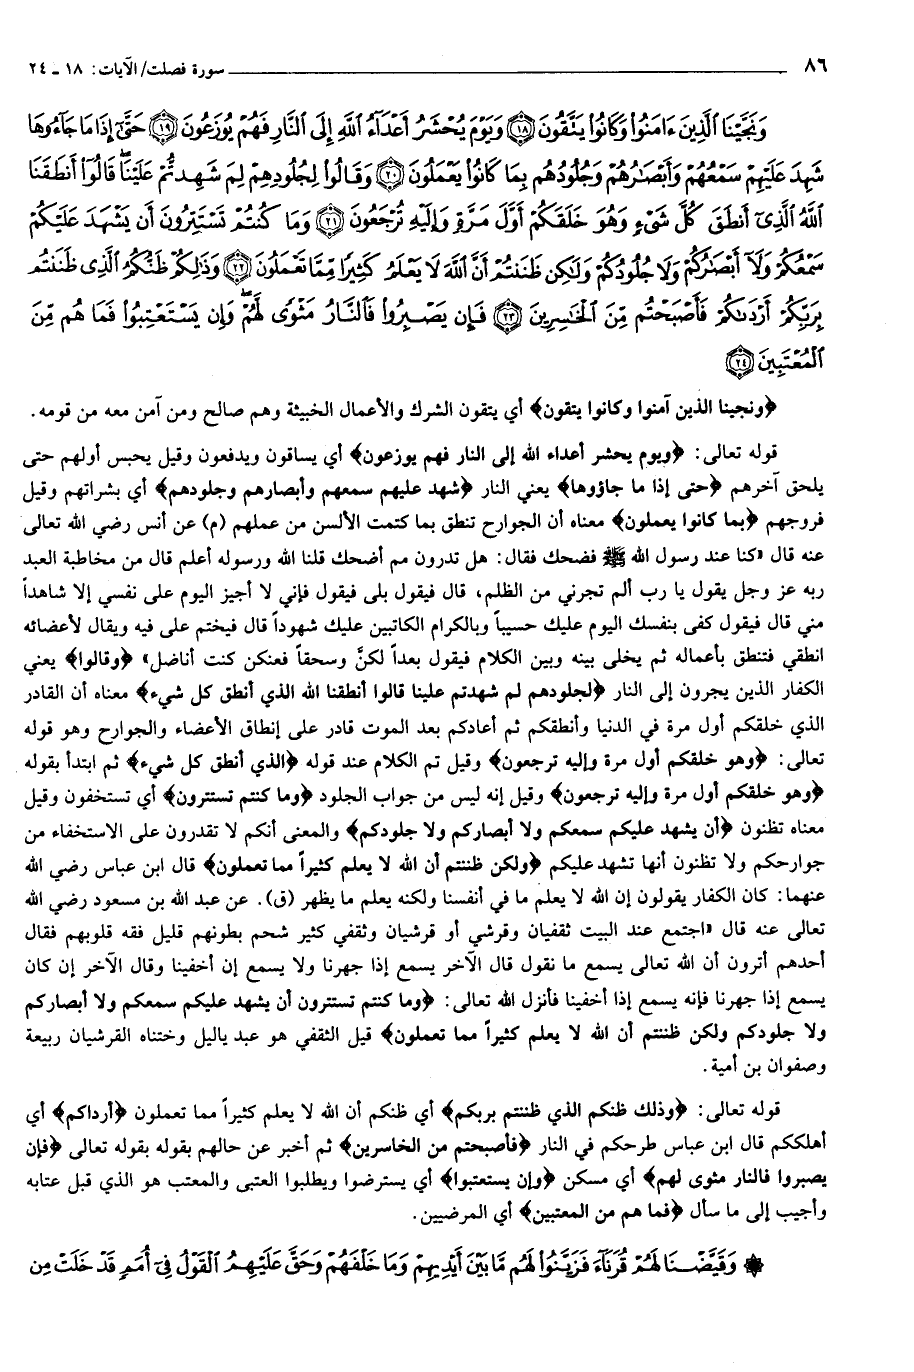 ٨٦ سورة فصلت/ الآيات: ١٨ - ٢٤
وَنَجَّيْنَا ٱلَّذِينَ ءَامَنُوا۟ وَكَانُوا۟ يَتَّقُونَ ﴿١٨﴾ وَيَوْمَ يُحْشَرُ أَعْدَآءُ ٱللَّهِ إِلَى ٱلنَّارِ فَهُمْ يُوزَعُونَ ﴿١٩﴾ حَتَّىٰٓ إِذَا مَا جَآءُوهَا
شَهِدَ عَلَيْهِمْ سَمْعُهُمْ وَأَبْصَٰرُهُمْ وَجُلُودُهُم بِمَا كَانُوا۟ يَعْمَلُونَ ﴿٢٠﴾ وَقَالُوا۟ لِجُلُودِهِمْ لِمَ شَهِدتُّمْ عَلَيْنَا ۖ قَالُوٓا۟ أَنطَقَنَا
ٱللَّهُ ٱلَّذِىٓ أَنطَقَ كُلَّ شَىْءٍ وَهُوَ خَلَقَكُمْ أَوَّلَ مَرَّةٍ وَإِلَيْهِ تُرْجَعُونَ ﴿٢١﴾ وَمَا كُنتُمْ تَسْتَتِرُونَ أَن يَشْهَدَ عَلَيْكُمْ
سَمْعُكُمْ وَلَآ أَبْصَٰرُكُمْ وَلَا جُلُودُكُمْ وَلَٰكِن ظَنَنتُمْ أَنَّ ٱللَّهَ لَا يَعْلَمُ كَثِيرًا مِّمَّا تَعْمَلُونَ ﴿٢٢﴾ وَذَٰلِكُمْ ظَنُّكُمُ ٱلَّذِى ظَنَنتُم
بِرَبِّكُمْ أَرْدَىٰكُمْ فَأَصْبَحْتُم مِّنَ ٱلْخَٰسِرِينَ ﴿٢٣﴾ فَإِن يَصْبِرُوا۟ فَٱلنَّارُ مَثْوًى لَّهُمْ ۖ وَإِن يَسْتَعْتِبُوا۟ فَمَا هُم مِّنَ
ٱلْمُعْتَبِينَ ﴿٢٤﴾
﴿ونجينا الذين آمنوا وكانوا يتقون﴾ أي يتقون الشرك والأعمال الخبيثة وهم صالح ومن آمن معه من قومه.
قوله تعالى: ﴿ويوم يحشر أعداء الله إلى النار فهم يوزعون﴾ أي يساقون ويدفعون وقيل يحبس أولهم حتى
يلحق آخرهم ﴿حتى إذا ما جاؤوها﴾ يعني النار ﴿شهد عليهم سمعهم وأبصارهم وجلودهم﴾ أي بشراتهم وقيل
فروجهم ﴿بما كانوا يعملون﴾ معناه أن الجوارح تنطق بما كتمت الألسن من عملهم (م) عن أنس رضي الله تعالى
عنه قال «كنا عند رسول الله ﷺ فضحك فقال: هل تدرون مم أضحك قلنا الله ورسوله أعلم قال من مخاطبة العبد
ربه عز وجل يقول يا رب ألم تجرني من الظلم، قال فيقول بلى فيقول فإني لا أجيز اليوم على نفسي إلا شاهداً
مني قال فيقول كفى بنفسك اليوم عليك حسيباً وبالكرام الكاتبين عليك شهوداً قال فيختم على فيه ويقال لأعضائه
انطقي فتنطق بأعماله ثم يخلى بينه وبين الكلام فيقول بعداً لكنَّ وسحقاً فعنكن كنت أناضل» ﴿وقالوا﴾ يعني
الكفار الذين يجرون إلى النار ﴿لجلودهم لم شهدتم علينا قالوا أنطقنا الله الذي أنطق كل شيء﴾ معناه أن القادر
الذي خلقكم أول مرة في الدنيا وأنطقكم ثم أعادكم بعد الموت قادر على إنطاق الأعضاء والجوارح وهو قوله
تعالى: ﴿وهو خلقكم أول مرة وإليه ترجعون﴾ وقيل تم الكلام عند قوله ﴿الذي أنطق كل شيء﴾ ثم ابتدأ بقوله
﴿وهو خلقكم أول مرة وإليه ترجعون﴾ وقيل إنه ليس من جواب الجلود ﴿وما كنتم تستترون﴾ أي تستخفون وقيل
معناه تظنون ﴿أن يشهد عليكم سمعكم ولا أبصاركم ولا جلودكم﴾ والمعنى أنكم لا تقدرون على الاستخفاء من
جوارحكم ولا تظنون أنها تشهد عليكم ﴿ولكن ظننتم أن الله لا يعلم كثيراً مما تعملون﴾ قال ابن عباس رضي الله
عنهما: كان الكفار يقولون إن الله لا يعلم ما في أنفسنا ولكنه يعلم ما يظهر (ق). عن عبد الله بن مسعود رضي الله
تعالى عنه قال «اجتمع عند البيت ثقفيان وقرشي أو قرشيان وثقفي كثير شحم بطونهم قليل فقه قلوبهم فقال
أحدهم أترون أن الله تعالى يسمع ما نقول قال الآخر يسمع إذا جهرنا ولا يسمع إن أخفينا وقال الآخر إن كان
يسمع إذا جهرنا فإنه يسمع إذا أخفينا فأنزل الله تعالى: ﴿وما كنتم تستترون أن يشهد عليكم سمعكم ولا أبصاركم
ولا جلودكم ولكن ظننتم أن الله لا يعلم كثيراً مما تعملون﴾ قيل الثقفي هو عبد ياليل وختناه القرشيان ربيعة
وصفوان بن أمية.
قوله تعالى: ﴿وذلك ظنكم الذي ظننتم بربكم﴾ أي ظنكم أن الله لا يعلم كثيراً مما تعملون ﴿أرداكم﴾ أي
أهلككم قال ابن عباس طرحكم في النار ﴿فأصبحتم من الخاسرين﴾ ثم أخبر عن حالهم بقوله بقوله تعالى ﴿فإن
يصبروا فالنار مثوى لهم﴾ أي مسكن ﴿وإن يستعتبوا﴾ أي يسترضوا ويطلبوا العتبى والمعتب هو الذي قبل عتابه
وأجيب إلى ما سأل ﴿فما هم من المعتبين﴾ أي المرضيين.
۞ وَقَيَّضْنَا لَهُمْ قُرَنَآءَ فَزَيَّنُوا۟ لَهُم مَّا بَيْنَ أَيْدِيهِمْ وَمَا خَلْفَهُمْ وَحَقَّ عَلَيْهِمُ ٱلْقَوْلُ فِىٓ أُمَمٍ قَدْ خَلَتْ مِن